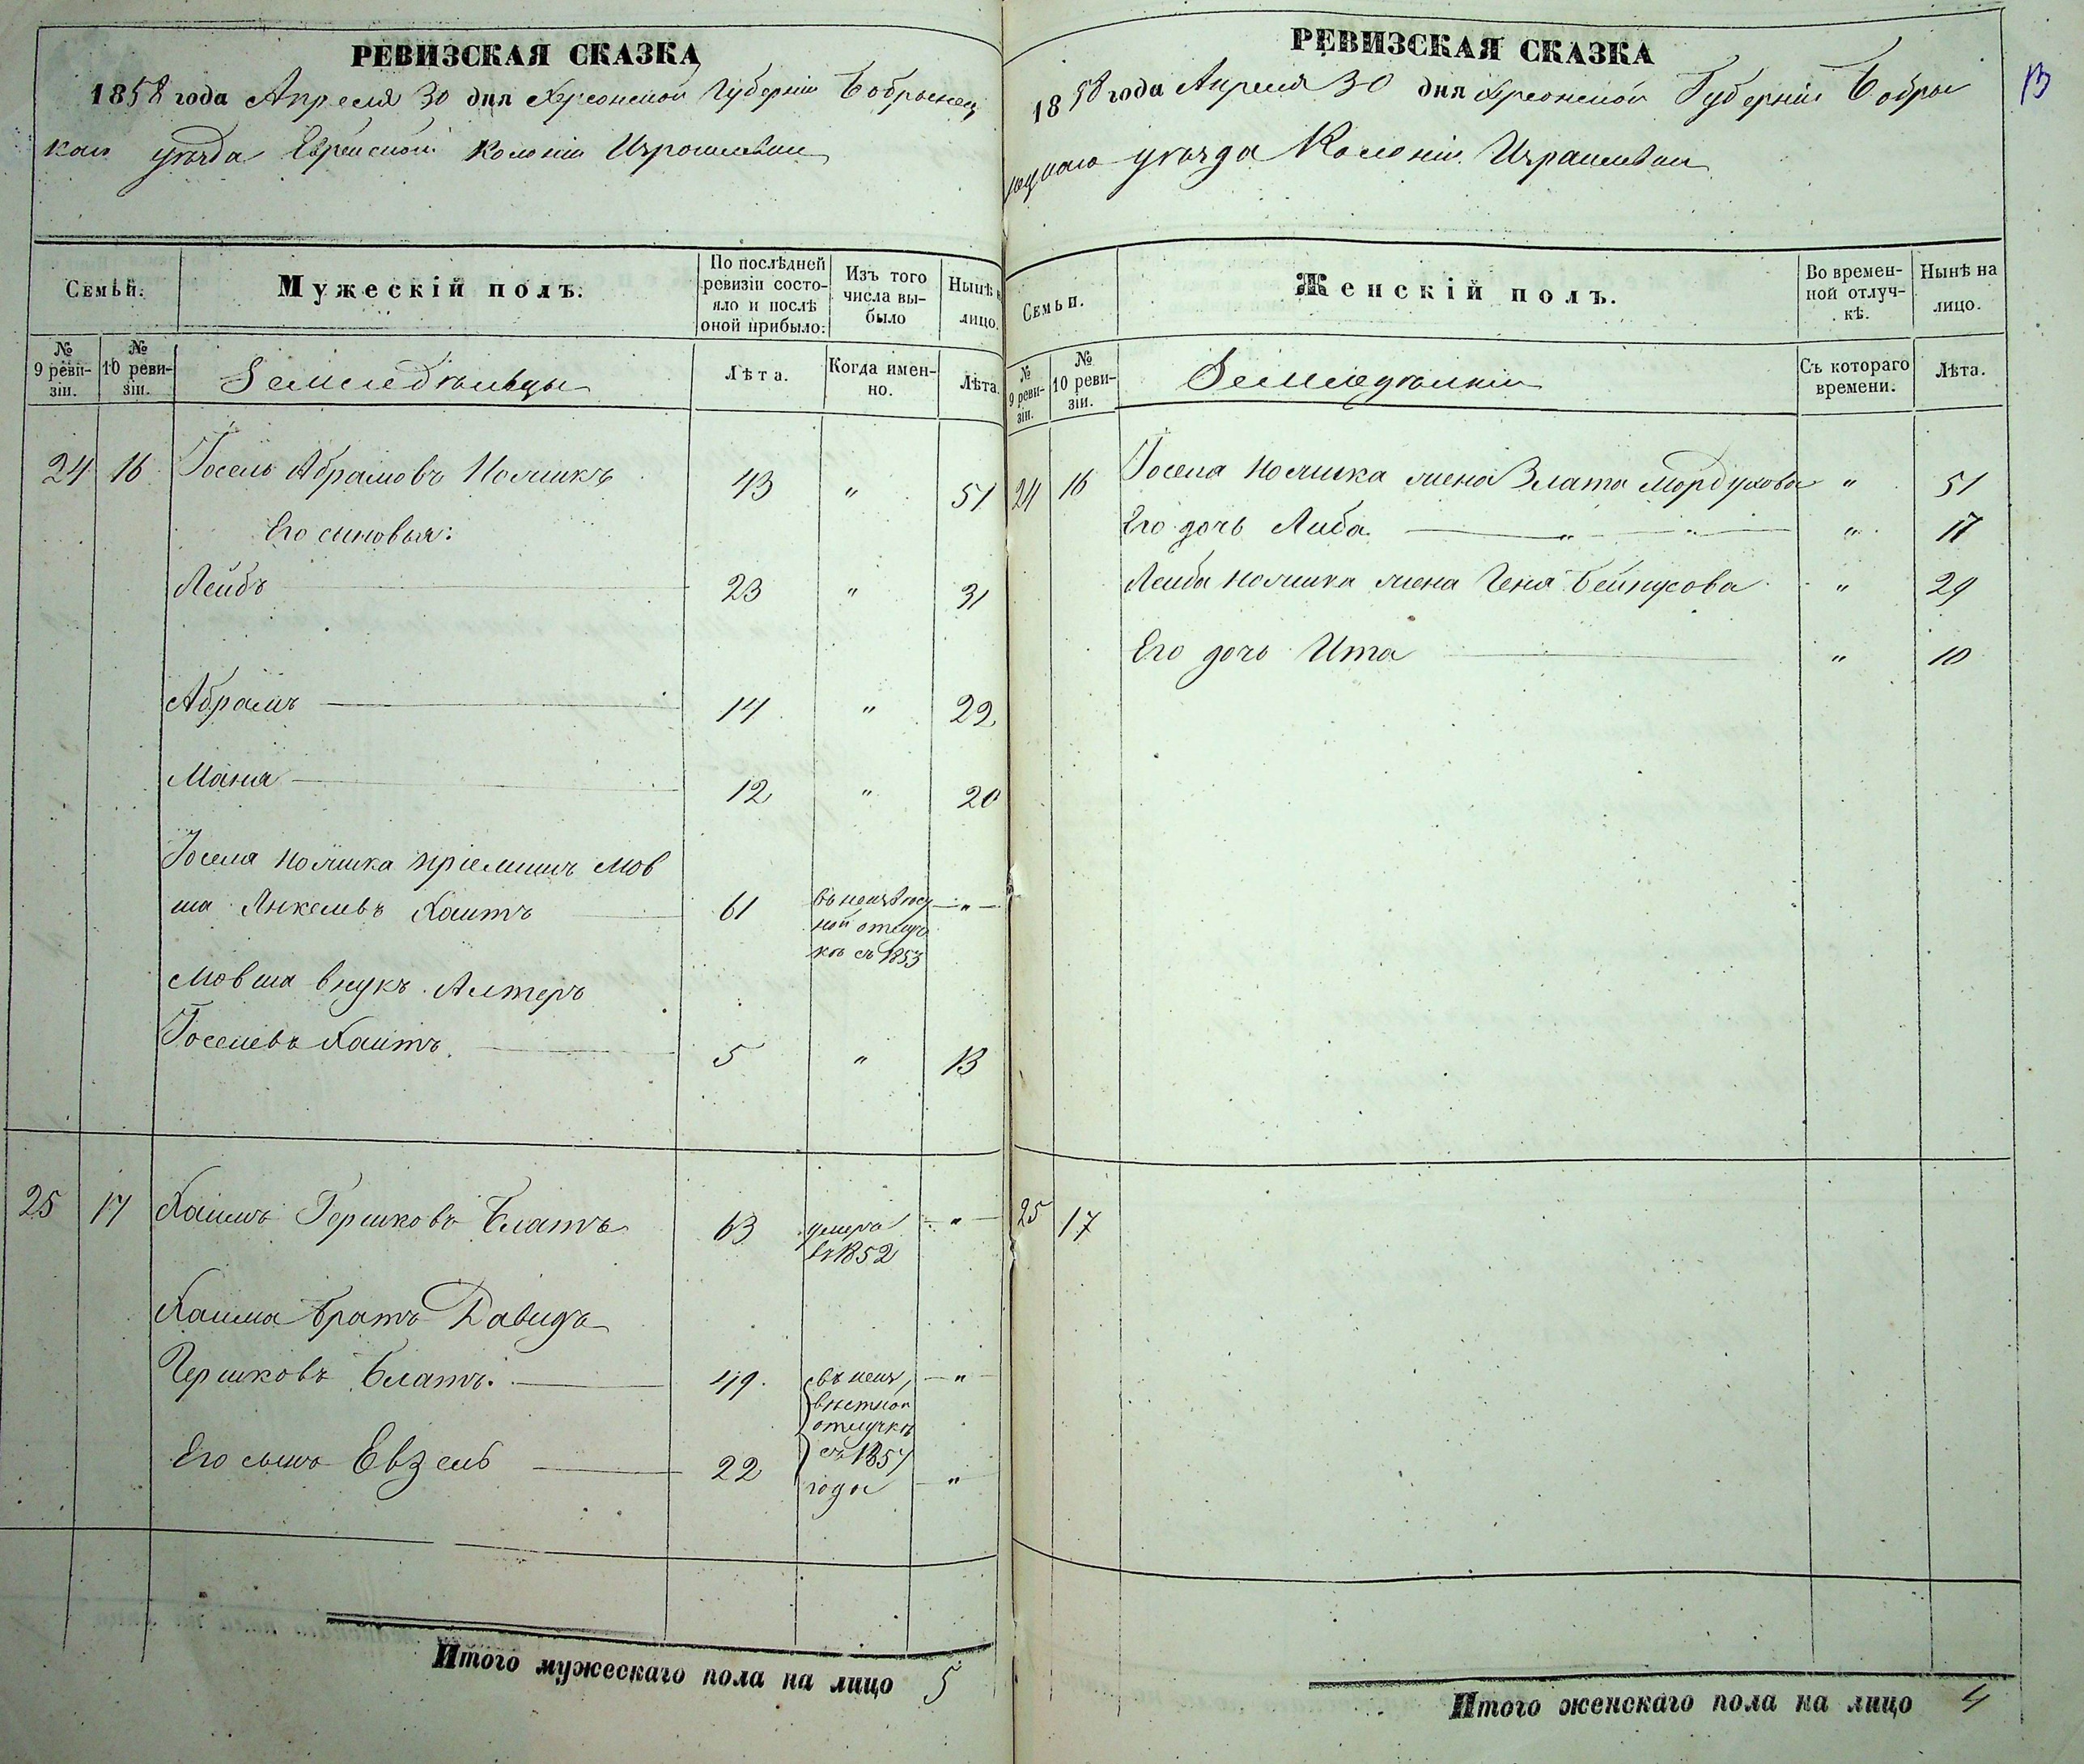 РЕВИЗСКАЯ СКАЗКА
1858 года Апреля 30 дня Херсонской Губерніи Бобрынец
каго уѣзда Еврейской Колоніи Израилевки
Семьи.
Мужескій полъ.
По послѣдней ревизіи состояло и послѣ оной прибыло:
Изъ того числа выбыло
Нынѣ н лицо.
№ 9 ревизіи.
№ 10 ревизіи.
Земледѣльцы
Лѣта.
Когда именно.
Лѣта.
24 16 Іосель Абрамовъ Полякъ 43 " 51
Его сыновья:
Лейбъ 23 " 31
Абрамъ 14 " 22
Маня 12 " 20
Іоселя Поляка пріемышъ Мов
ша Янкелевъ Хаитъ 61 въ неизвѣст
ной отлуч
кѣ съ 1853 "
Мовша внукъ Алтеръ
Іоселевъ Хаитъ 5 " 13
25 17 Хаимъ Гершковъ Блатъ 63 умеръ
въ 1852 "
Хаима братъ Давидъ
Гершковъ Блатъ. 49. въ неиз
вѣстной
отлучкѣ "
Его сынъ Евзель 22 съ 1857
года "
Итого мужескаго пола на лицо 5
РЕВИЗСКАЯ СКАЗКА
13
1858 года Апреля 30 дня Херсонской Губерніи Бобры
нецкаго уѣзда Колоніи Израилевки
Семьи.
Женскій полъ.
Во временной отлучкѣ.
Нынѣ на лицо.
№ 9 ревизіи.
№ 10 ревизіи.
Съ котораго времени.
Лѣта.
24 16 Іоселя Поляка жена Злата Мордухова " 51
Его дочь Либа " 17
Лейба Поляка жена Геня Бейнусова " 29
Его дочь Ита " 10
25 17
Итого женскаго пола на лицо 4